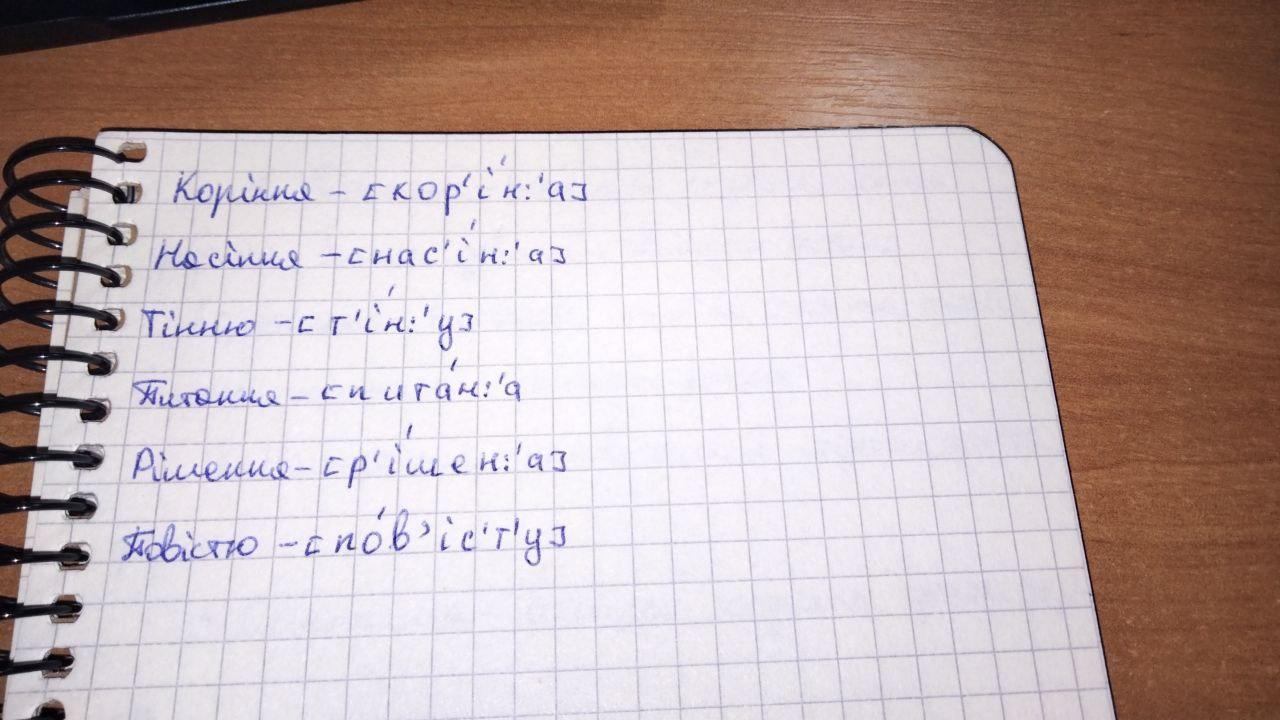 Коріння – [кор'і́н:'а]
Насіння – [нас'і́н:'а]
Тінню – [т'і́н:'у]
Питання – [пита́н:'а
Рішення – [р'і́шен:'а]
Повістю – [по́в’іс'т'у]